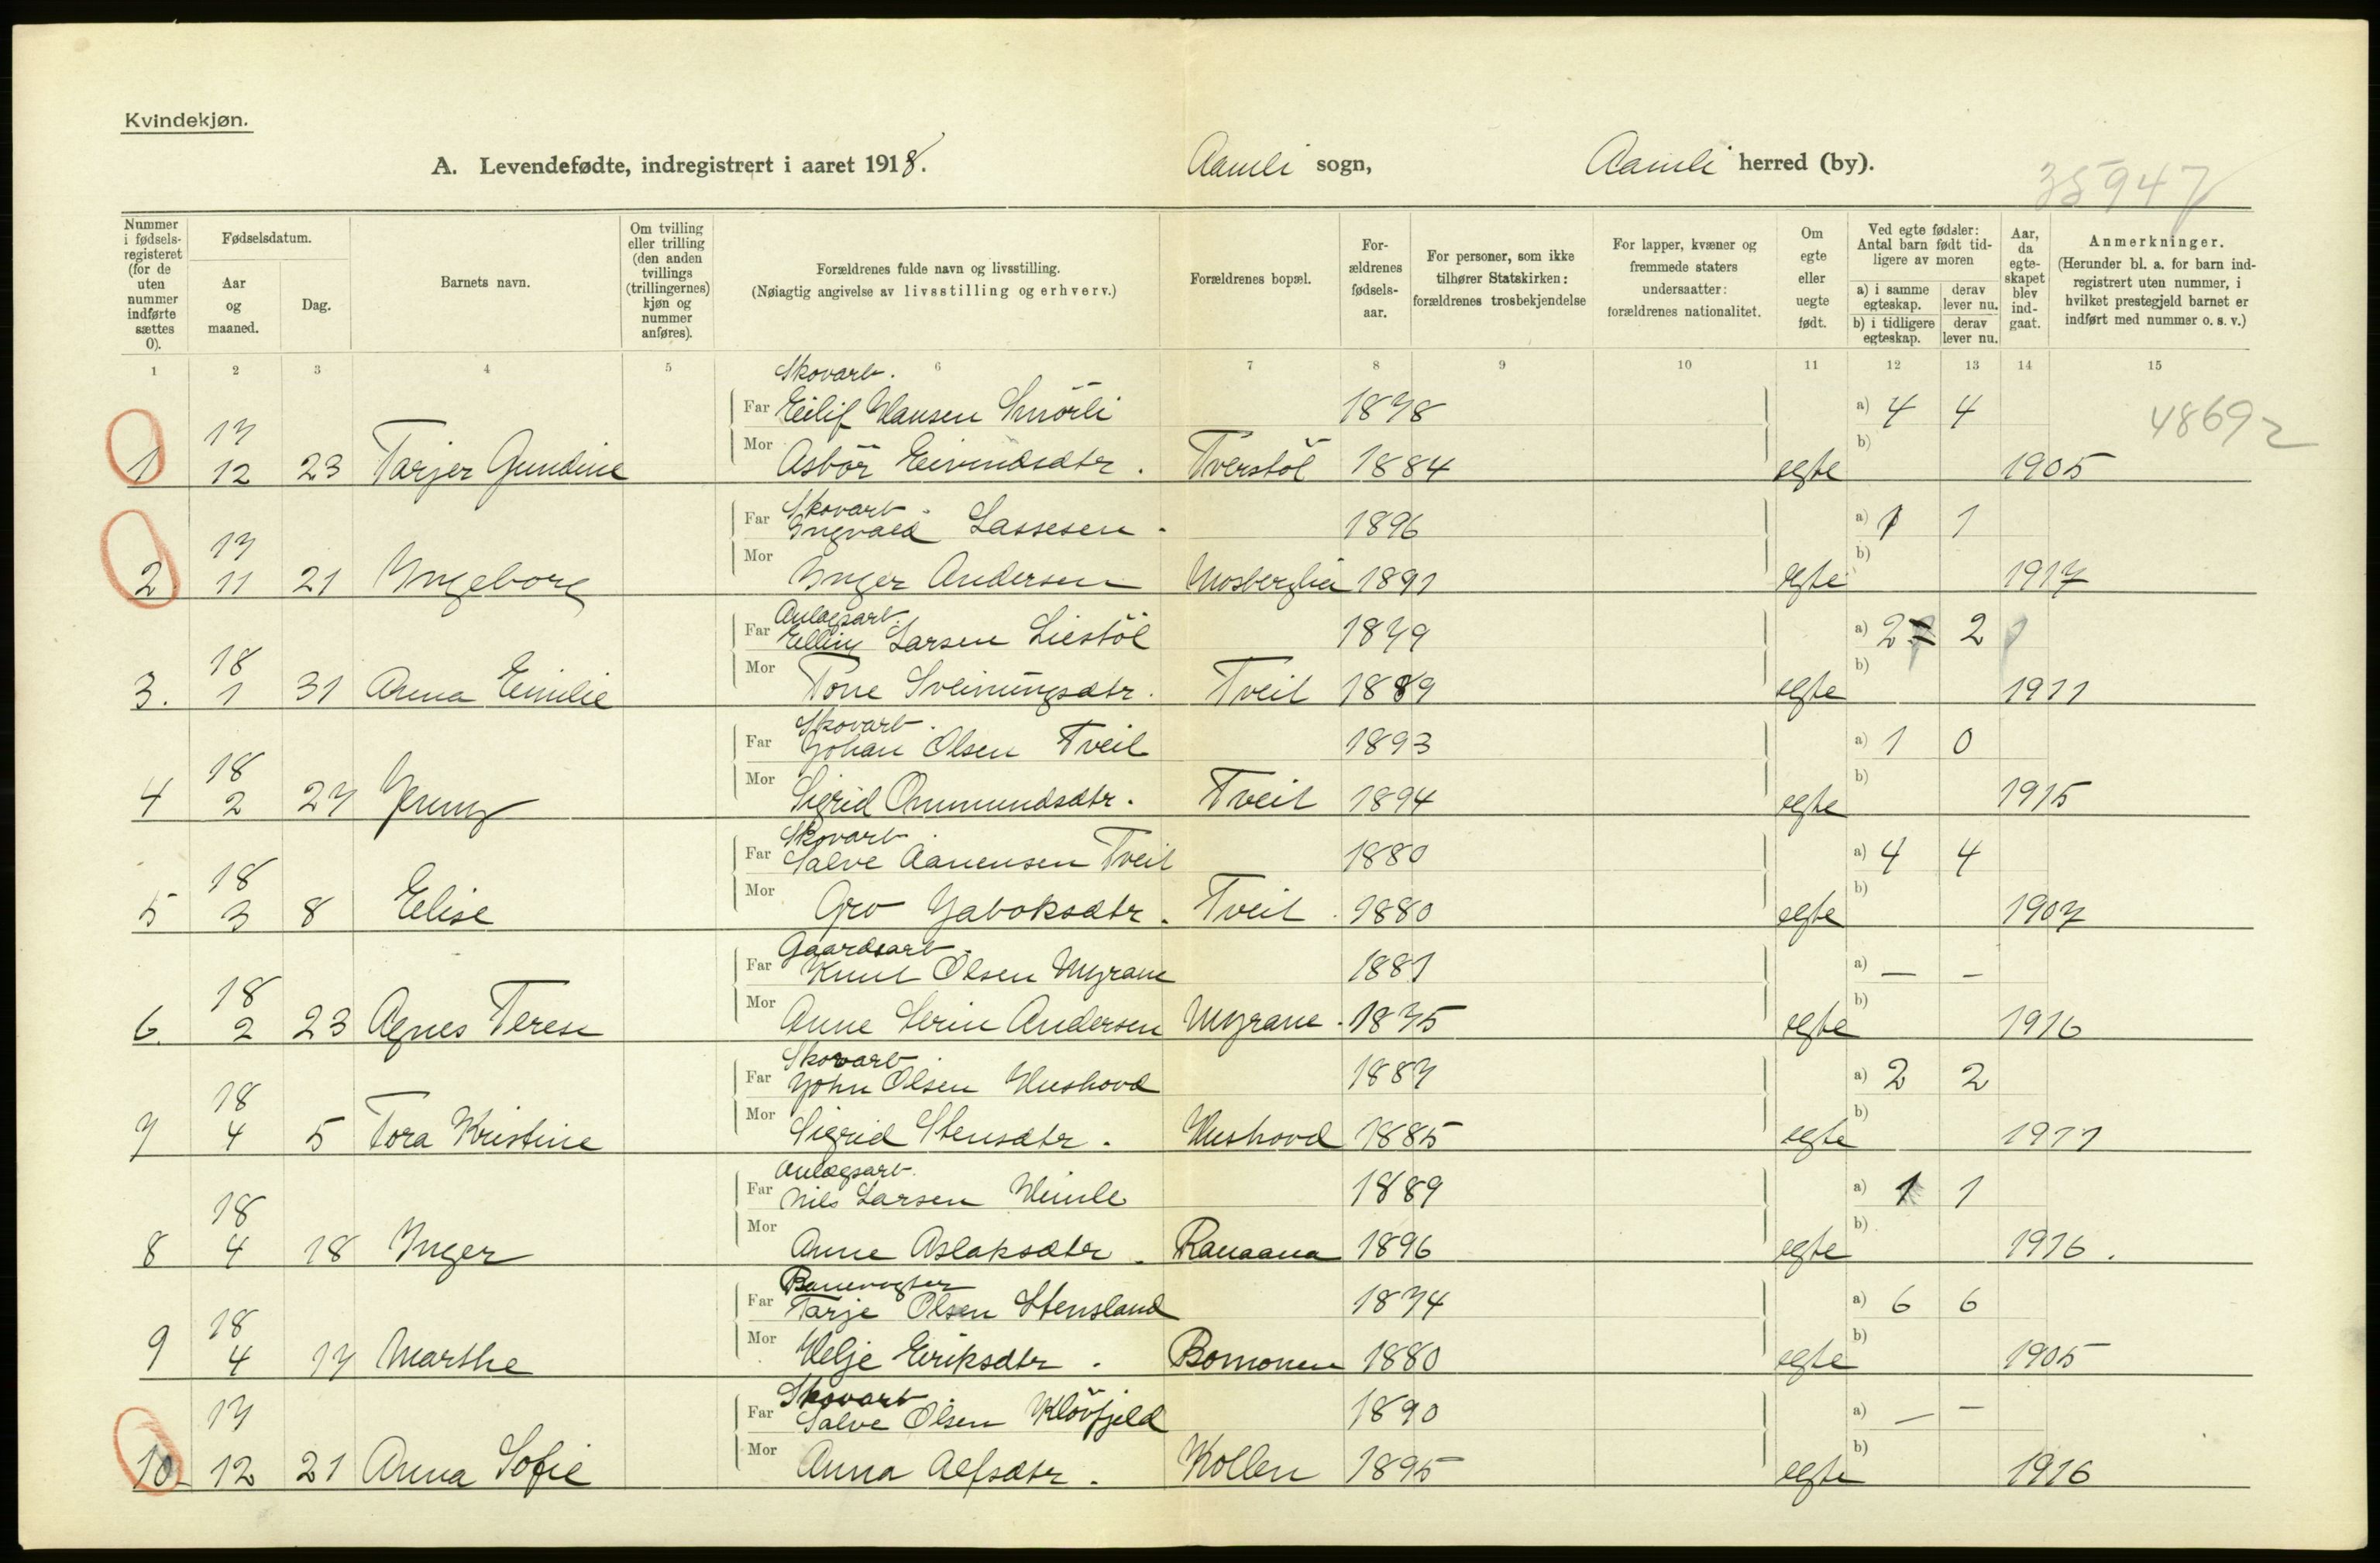 Kvindekjøn.
A. Levendefødte, indregistrert i aaret 1918. Aamli sogn, Aamli herred (by).
35947
Nummer i fødsels-registeret (for de uten nummer indførte sættes 0).
Fødselsdatum.
Aar og maaned.
Dag.
Barnets navn.
Om tvilling eller trilling (den anden tvillings (trillingernes) kjøn og nummer anføres).
Forældrenes fulde navn og livsstilling.
(Nøiagtig angivelse av livsstilling og erhverv.)
Forældrenes bopæl.
For-ældrenes fødsels-aar.
For personer, som ikke tilhører Statskirken: forældrenes trosbekjendelse
For lapper, kvæner og fremmede staters undersaatter: forældrenes nationalitet.
Om egte eller uegte født.
Ved egte fødsler: Antal barn født tid-ligere av moren
a) i samme egteskap. derav lever nu.
b) i tidligere egteskap. derav lever nu.
Aar, da egte-skapet blev ind-gaat.
Anmerkninger.
(Herunder bl. a. for barn ind-registrert uten nummer, i hvilket prestegjeld barnet er indført med nummer o. s. v.)
1 2 3 4 5 6 7 8 9 10 11 12 13 14 15
Skovarb.
17 Far Eilif Hansen Smörli 1878 a) 4 4 48692
1 12 23 Tarjer Gundine Mor Asbör Eivindsdtr. Tverstöl 1884 egte b) 1905
Skovarb.
17 Far Ingvald Lassesen 1896 a) 1 1
2 11 21 Ingeborg Mor Inger Andersen Mosberglia 1891 egte b) 1917
Anlægsarb.
18 Far Elling Larsen Liestöl 1879 a) 2 2
3. 1 31 Anna Emilie Mor Tone Sveinungsdtr. Tveit 1889 egte b) 1911
Skovarb.
18 Far Johan Olsen Tveit 1893 a) 1 0
4 2 27 Jenny Mor Sigrid Ommundsdtr. Tveit 1894 egte b) 1915
Skovarb.
18 Far Salve Aanensen Tveit 1880 a) 4 4
5 3 8 Elise Mor Gro Jakobsdtr. Tveit 1880 egte b) 1907
Gaardsarb.
18 Far Knut Olsen Myrane 1881 a) — —
6. 2 23 Agnes Terese Mor Anne Serine Andersen Myrane 1875 egte b) 1916
Skovarb.
18 Far John Olsen Hushovd 1887 a) 2 2
7 4 5 Tora Kristine Mor Sigrid Stensdtr. Hushovd 1885 egte b) 1911
Anlægsarb.
18 Far Nils Larsen Himle 1889 a) 1 1
8 4 18 Inger Mor Anne Aslaksdtr. Ranaana 1896 egte b) 1916.
Banevogter
18 Far Tarje Olsen Stensland 1874 a) 6 6
9 4 17 Marthe Mor Helje Eiriksdtr. Bomonen 1880 egte b) 1905
Skovarb.
17 Far Salve Olsen Klövfjeld 1890 a) — —
10 12 21 Anna Sofie Mor Anna Alfsdtr. Kollen 1895 egte b) 1916